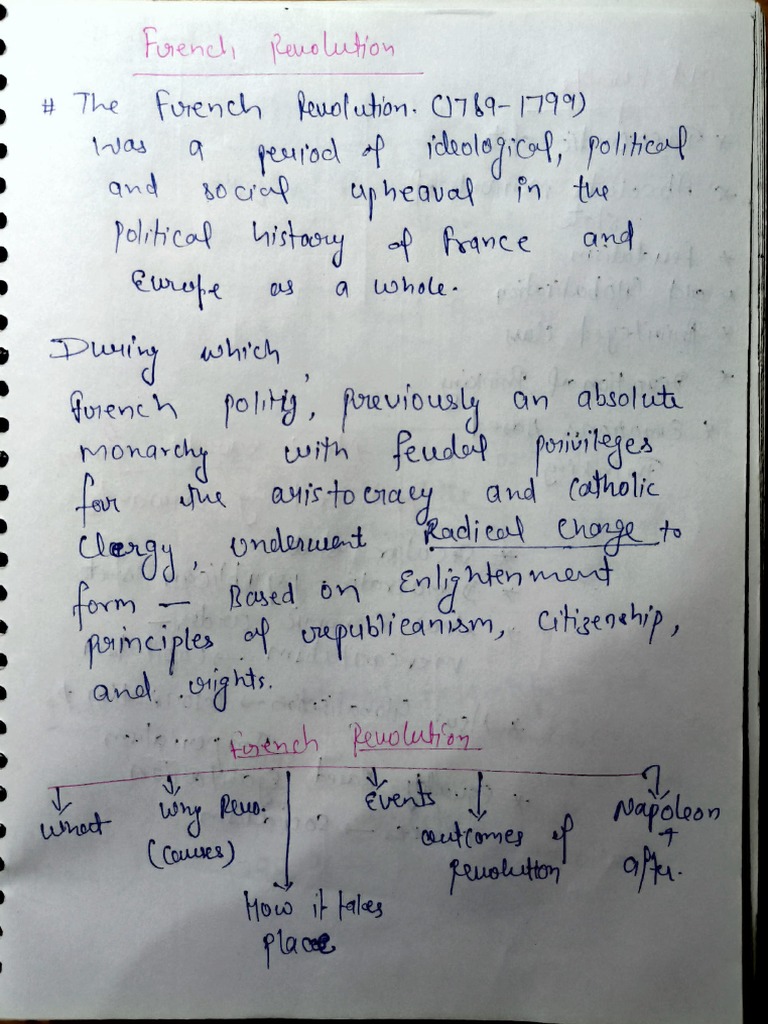 French Revolution
# The French Revolution. (1789-1799)
was a period of ideological, political
and social upheaval in the
political history of France and
Europe as a whole.
During which,
French politics, previously an absolute
monarchy with feudal privileges
for the aristocracy and Catholic
Clergy, underwent Radical Change to
form — Based on Enlightenment
principles of republicanism, citizenship,
and rights.
French Revolution
What
Why Revo.
(causes)
How it takes
place
Events
outcomes of
revolution
Napoleon
+
after.